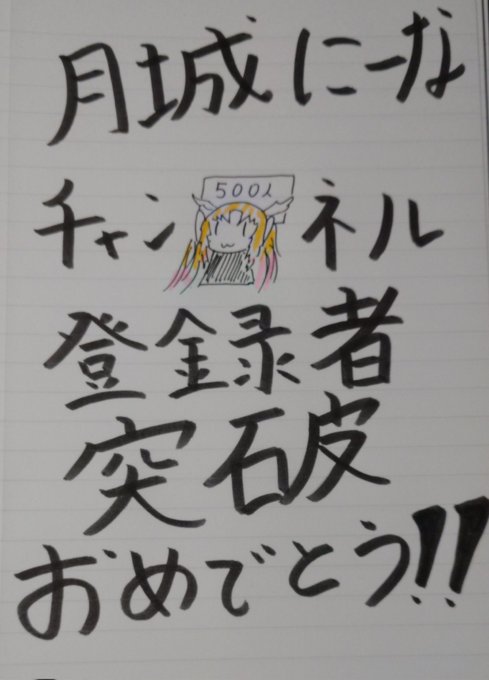 月城にーな
500人
チャンネル
登録者
突破
おめでとう!!